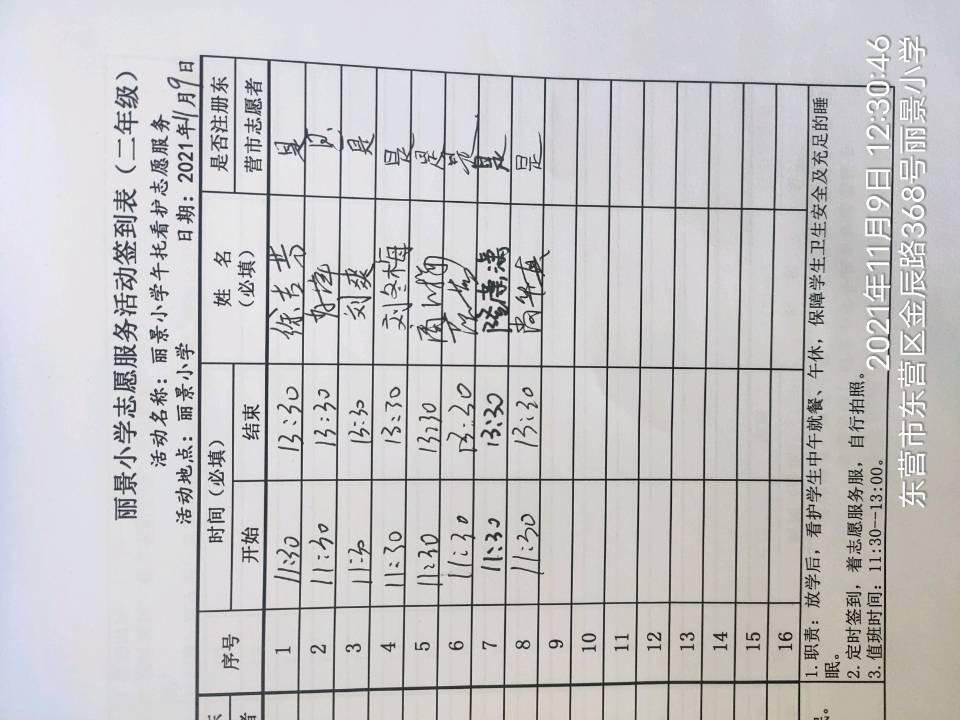 丽景小学志愿服务活动签到表（二年级）
活动名称：丽景小学午托看护志愿服务
活动地点：丽景小学 日期：2021年11月9日
序号 时间（必填） 姓名（必填） 是否注册东营市志愿者
开始 结束
1 11:30 13:30 徐吉芸 是
2 11:30 13:30 是
3 11:30 13:30 刘爽 是
4 11:30 13:30 刘冬梅 是
5 11:30 13:30 是
6 11:30 13:30 是
7 11:30 13:30 是
8 11:30 13:30 是
9
10
11
12
13
14
15
16
1. 职责：放学后，看护学生中午就餐、午休，保障学生卫生安全及充足的睡
眠。
2. 定时签到，着志愿服务服，自行拍照。
3. 值班时间：11:30--13:00。
2021年11月9日 12:30:46
东营市东营区金辰路368号丽景小学